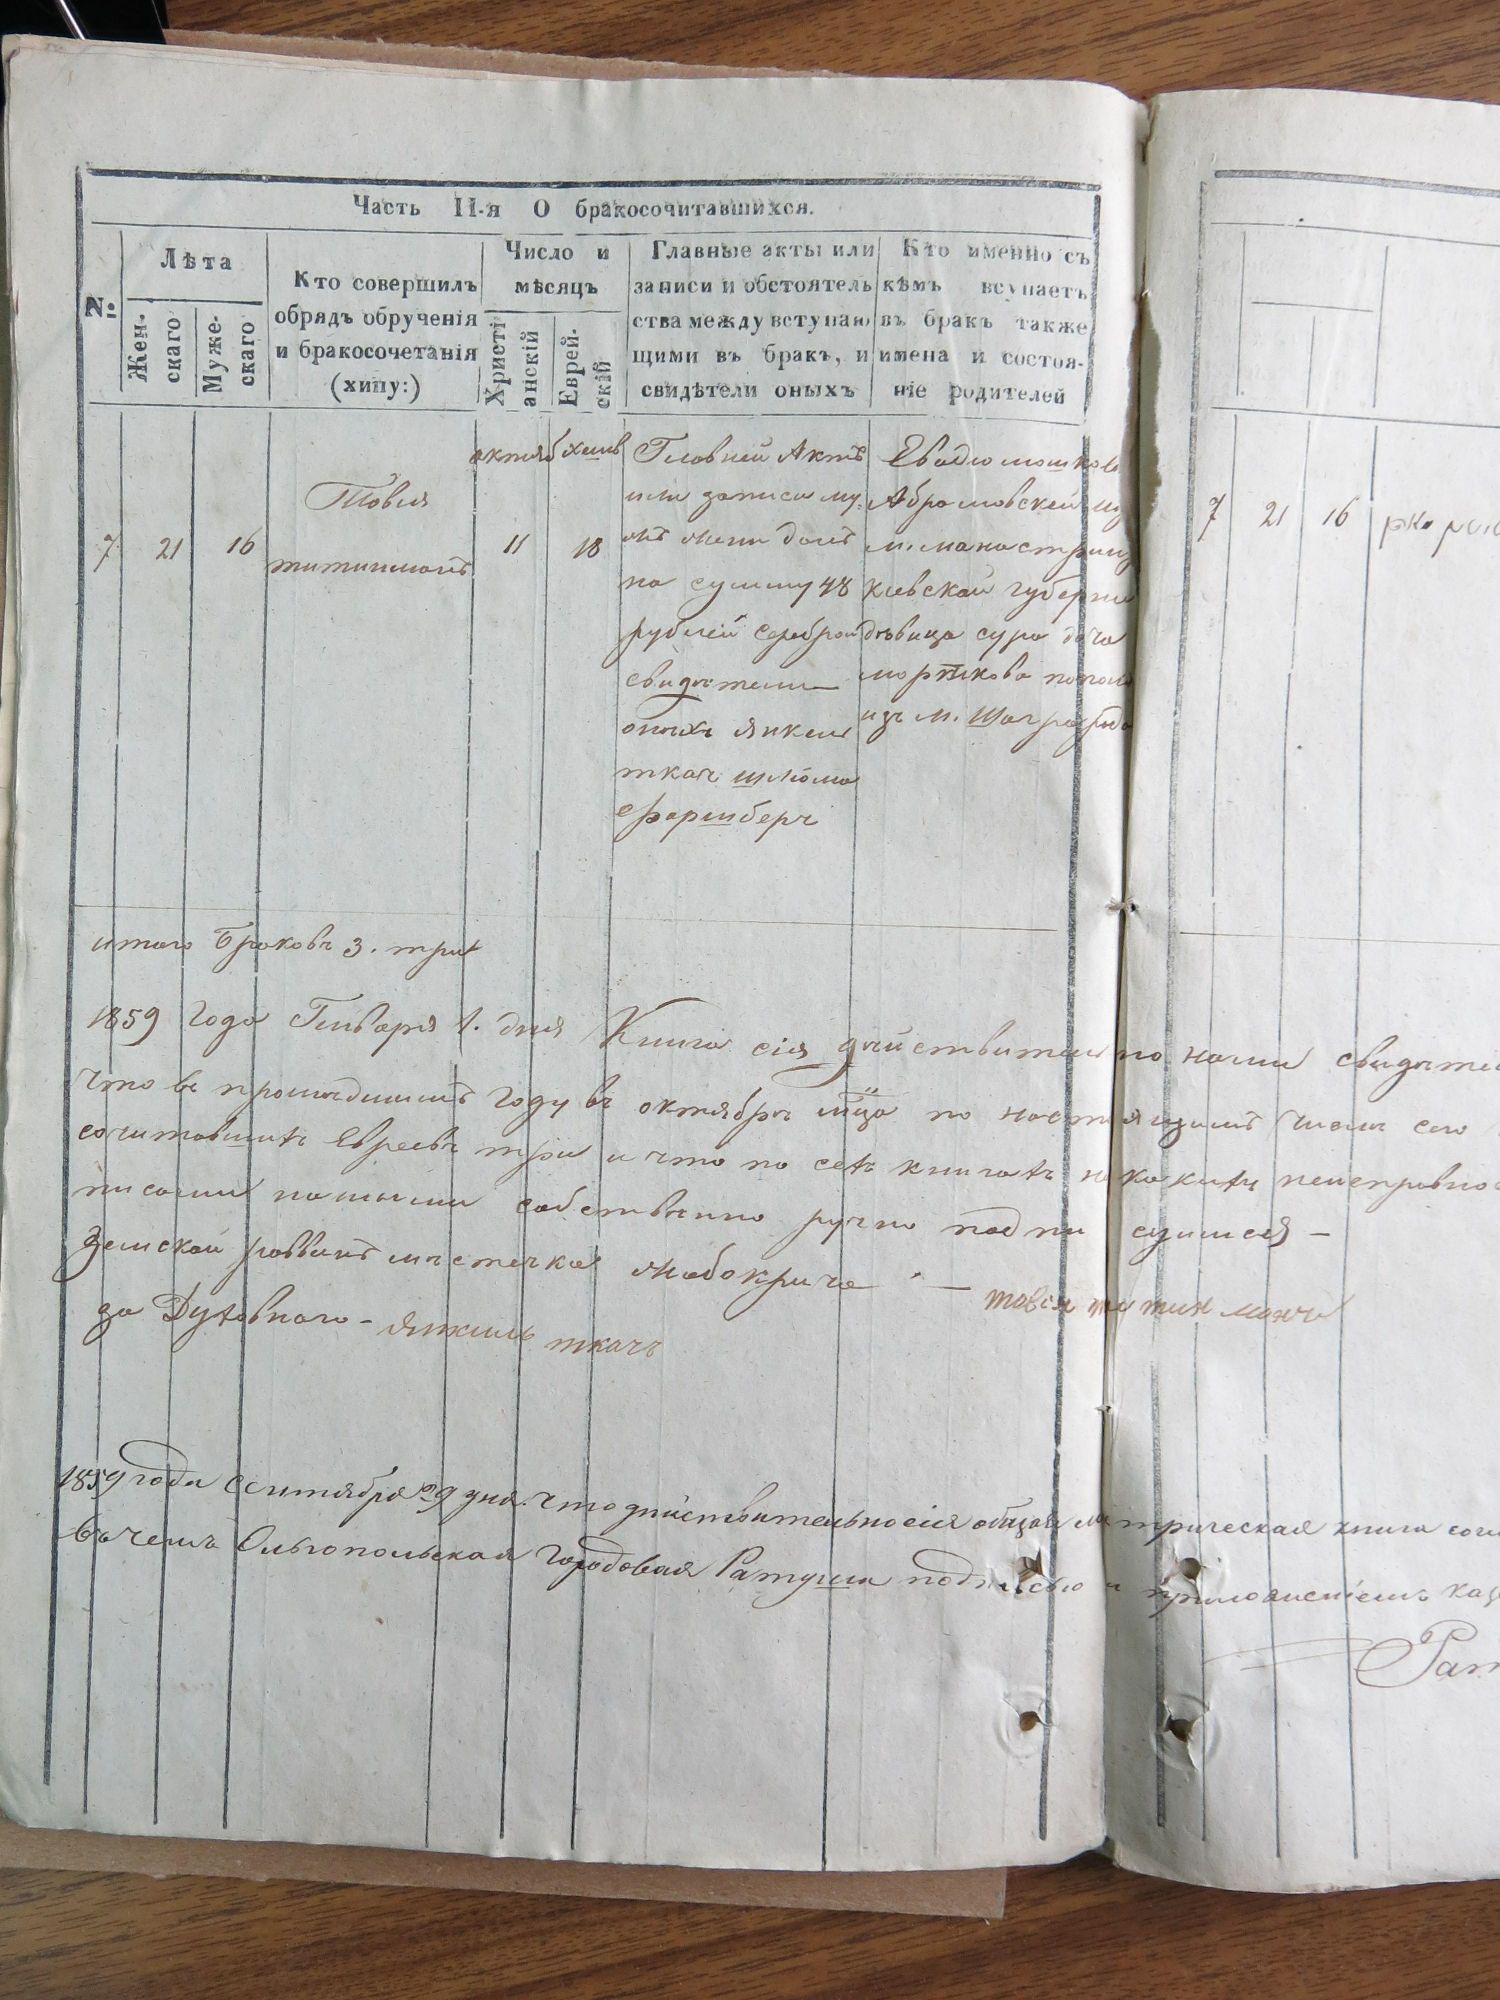 Часть II-я О бракосочитавшихся.
№:
Лѣта
Жен-
скаго
Муже-
скаго
Кто совершилъ
обрядъ обрученія
и бракосочетанія
(хипу:)
Число и
мѣсяцъ
Христі
анскій
Еврей-
скій
Главные акты или
записи и обстоятель
ства между вступаю
щими въ бракъ, и
свидѣтели оныхъ
Кто именно съ
кѣмъ вступаетъ
въ бракъ также
имена и состоя-
ніе родителей
7
21
16
Товия
титинманъ
октяб
11
18
Главней Актъ
или записи му
жъ жени далъ
на сумму 48
рублей серебром
свидѣтели
оныхъ янкель
ткач шлома
Абрамовскей из
м. монастрищ
киевской губерни
дѣвица сура доча
из м. Шаргрода
итого браковъ 3. три
1859 года Генваря 1. дня Книга сія дѣйствително нами свидѣте
что въ прошедшимъ году въ октябрѣ м̃ца по настоящимъ число сего
сочитавшихъ Евреевъ три и что по сехъ книгахъ некакихъ неисправнос
писании нашими собственно ручно подпи суимся -
Земской раввинъ мѣстечка жабокрича - товия титинманъ
за Духовнаго - янкиль ткачъ
1859 года Сентября 29 дня. что дѣйствительно сія общая метрическая книга
въ чемъ Ольгопольская Городовая Ратуша подписью и приложеніемъ каз
Рат
7
21
16